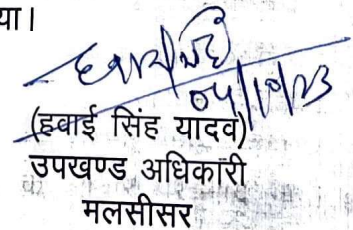 या।
04/10/23
(हवाई सिंह यादव)
उपखण्ड अधिकारी
मलसीसर